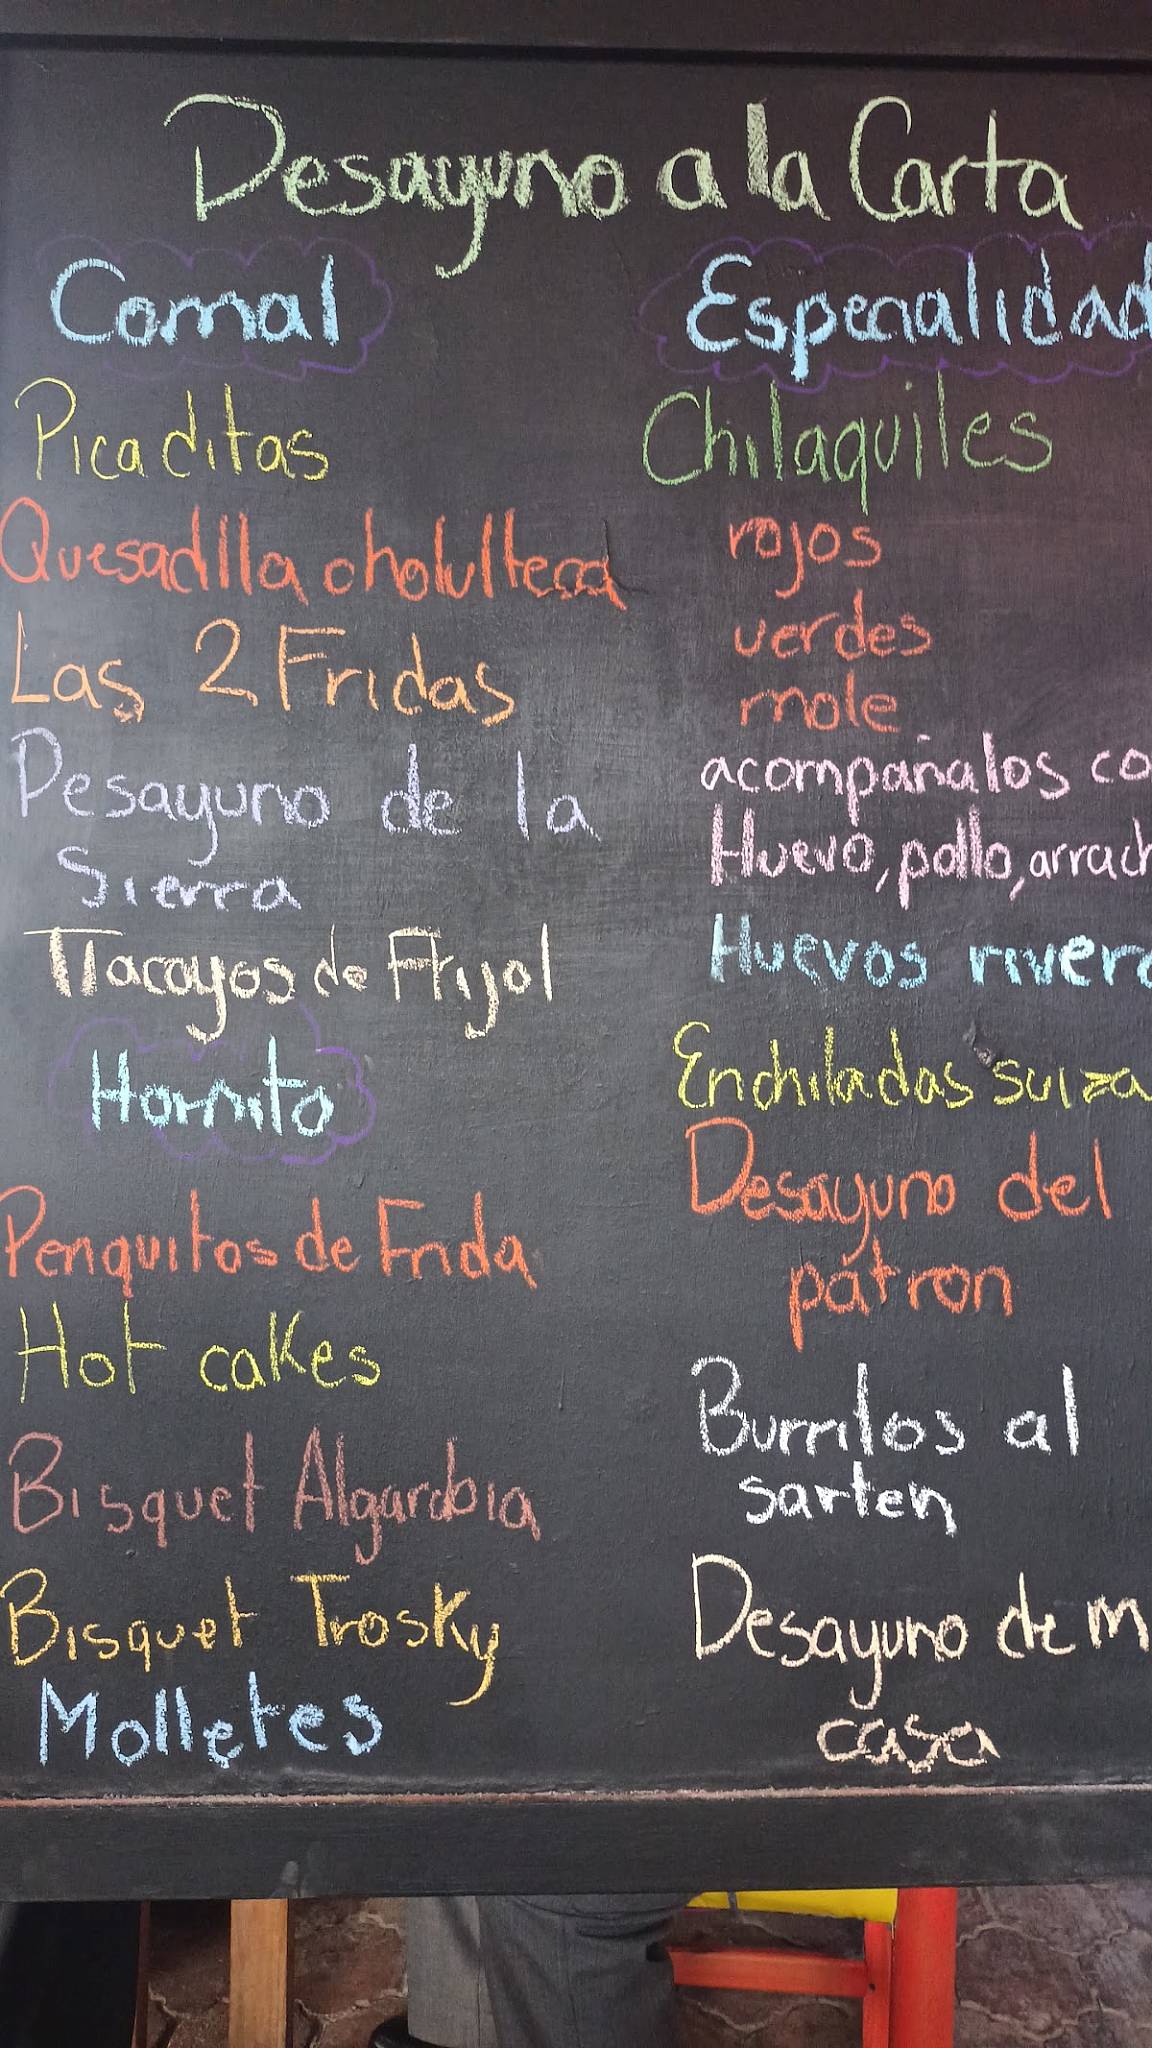 Desayuno a la Carta
Comal
Picaditas
Quesadilla cholulteca
Las 2 Fridas
Desayuno de la
Sierra
Tlacoyos de Frijol
Hornito
Penquitos de Frida
Hot cakes
Bisquet Algarabia
Bisquet Trosky
Molletes
Especialidad
Chilaquiles
rojos
verdes
mole
acompañalos co
Huevo, pollo, arrach
Huevos rivera
Enchiladas suiza
Desayuno del
patron
Burritos al
sarten
Desayuno de m
casa